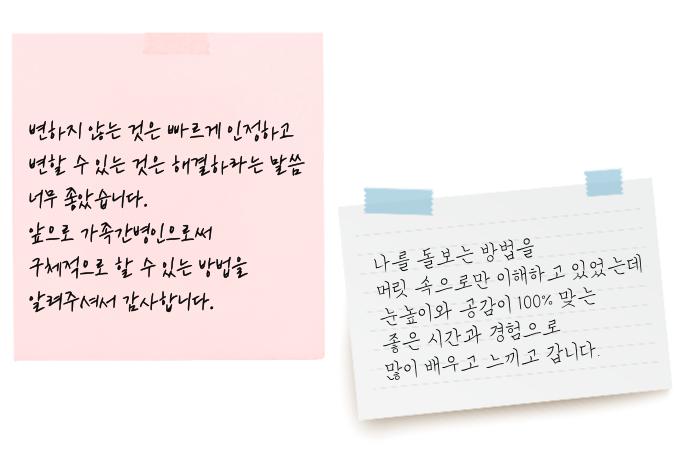 변하지 않는 것은 빠르게 인정하고
변할 수 있는 것은 해결하라는 말씀
너무 좋았습니다.
앞으로 가족간병인으로써
구체적으로 할 수 있는 방법을
알려주셔서 감사합니다.
나를 돌보는 방법을
머릿 속으로만 이해하고 있었는데
눈높이와 공감이 100% 맞는
좋은 시간과 경험으로
많이 배우고 느끼고 갑니다.